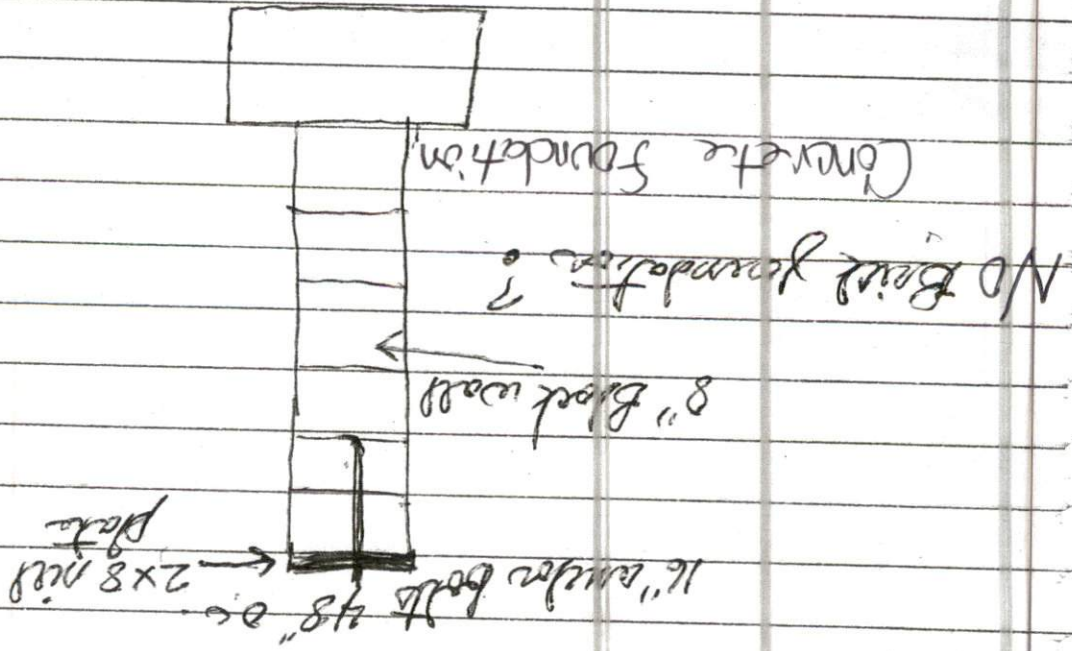 16" anchor bolts 48" oc.
2x8 sill
plate
8" Block wall
No Brick foundation?
Concrete Foundation